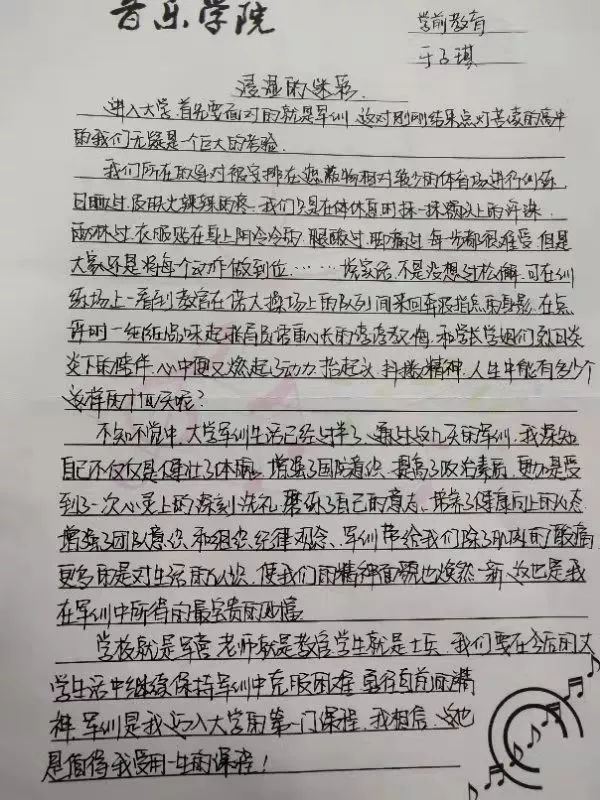 音乐学院
学前教育
于子琪
浸湿的迷彩
进入大学，首先要面对的就是军训，这对刚刚结束点灯苦读的高中
的我们无疑是一个巨大的考验。
我们所在的连队被安排在遮蔽物相对较少的体育场进行训练
日晒过，皮肤火辣辣的疼，我们只是在休息时抹一抹额头上的汗珠
雨淋过，衣服贴在身上阴冷冷的，腿酸过，脚痛过，每步都很难受，但是
大家还是将每个动作做到位……说实话，不是没想过松懈，可在训
练场上一看到教官在诺大操场上的队列间来回奔波指点的身影，在点
评时一细细品味起推着反语重心长的谆谆教悔，和学长学姐们烈日炎
炎下的陪伴，心中便又燃起了动力，抬起头，抖擞精神，人生中能有多少个
这样的十几天呢？
不知不觉中，大学军训生活已经过半了，通过这几天的军训，我深知
自己不仅仅是健壮了体魄，增强了国防意识，提高了政治素质，更加是受
到了一次心灵上的深刻洗礼，磨练了自己的意志，培养了健康向上的心态
增强了团队意识和组织纪律观念、军训带给我们除了肌肉的酸痛
更多的是对生活的认识，使我们的精神面貌也焕然一新，这也是我
在军训中所得的最宝贵的财富
学校就是军营，老师就是教官，学生就是士兵，我们要在今后的大
学生活中继续保持军训中克服困难，勇往直前的精
神，军训是我迈入大学的第一门课程，我相信，这也
是值得我受用一生的课程！